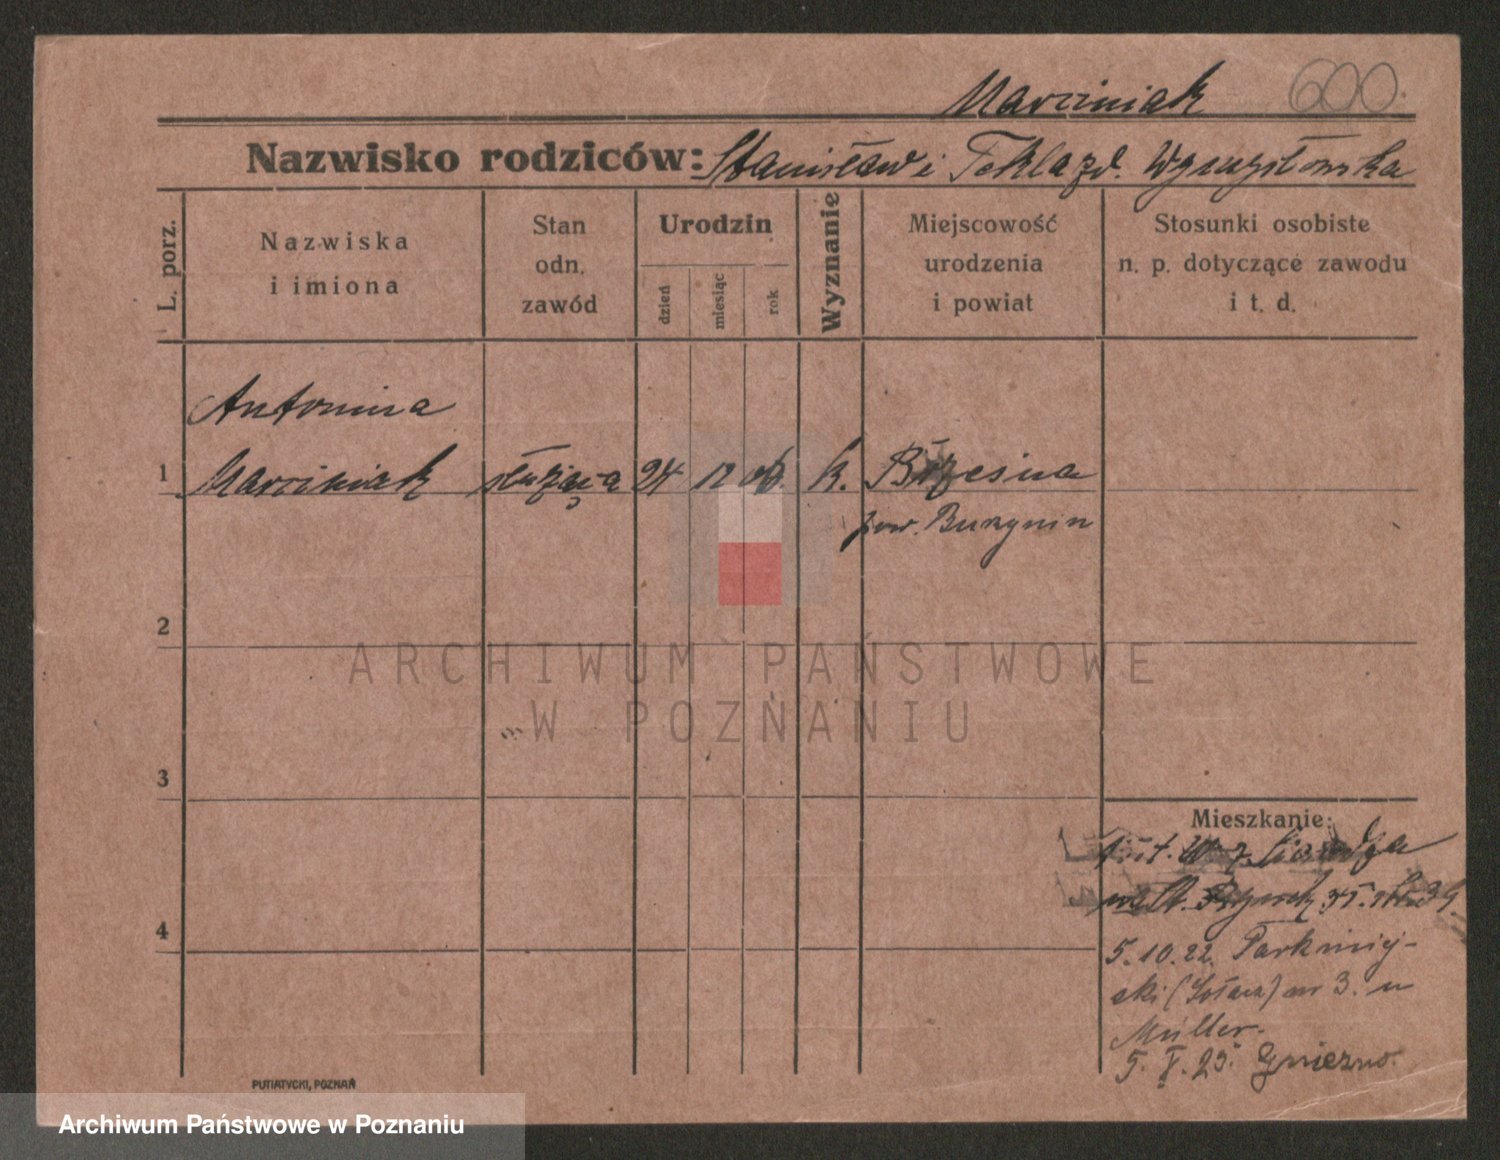 Marciniak 600.
Nazwisko rodziców: Stanisław i Tekla zd.
L. porz.
Nazwiska
i imiona
Stan
odn.
zawód
Urodzin
dzień
miesiąc
rok
Wyznanie
Miejscowość
urodzenia
i powiat
Stosunki osobiste
n. p. dotyczące zawodu
i t. d.
Antonina
1 Marciniak służąca 24 12 k.
pow.
2
3
4
ARCHIWUM PAŃSTWOWE
W POZNANIU
Mieszkanie:
5.10.22. Park miej-
ski (Sołacz) nr 3. u
Müller.
5. V. 23. Gniezno.
PUTIATYCKI, POZNAŃ
Archiwum Państwowe w Poznaniu